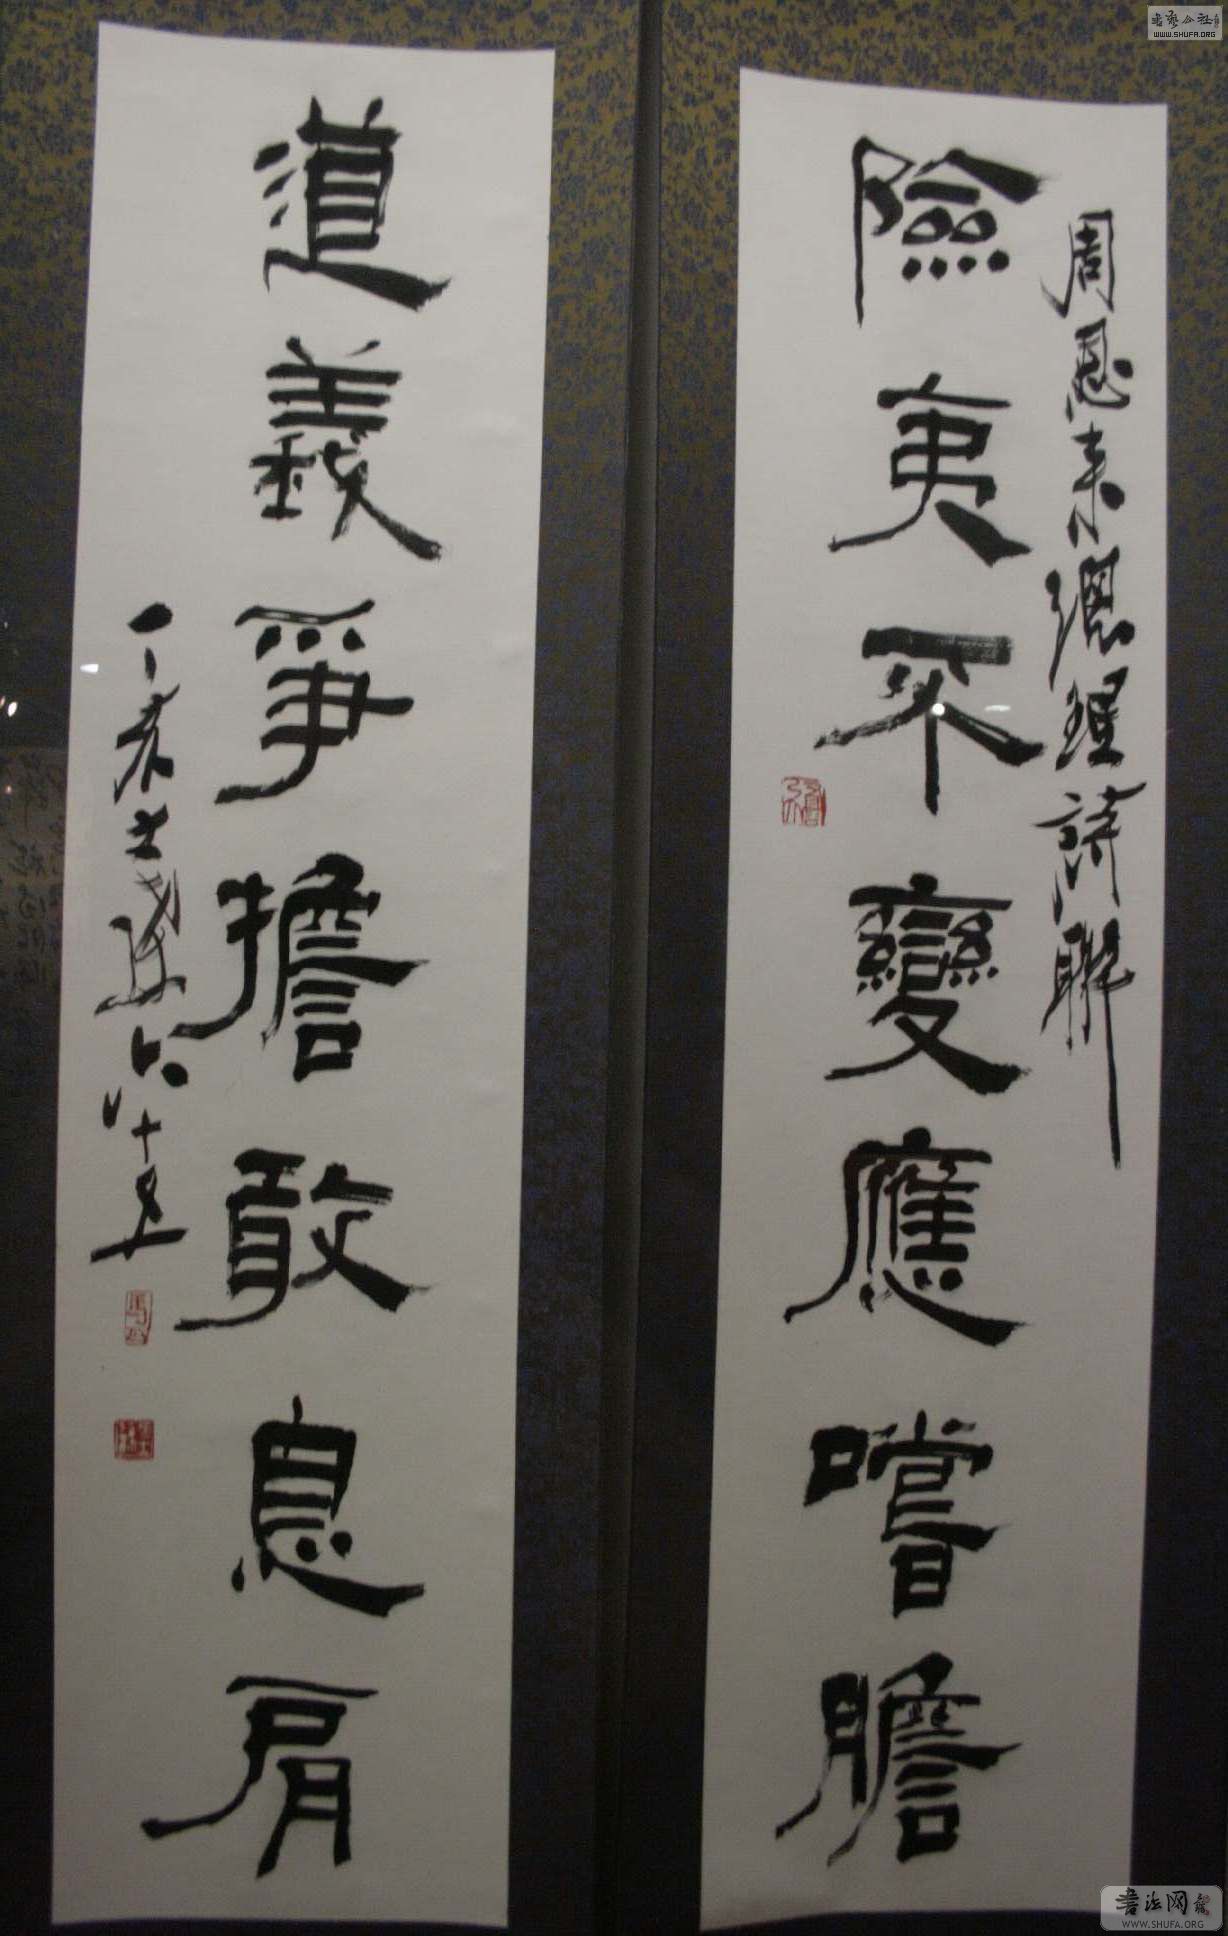 周恩来總理詩聯
險夷不變應嘗膽
道義爭擔敢息肩
丁亥
六十五
書法公社
WWW.SHUFA.ORG
書法网
WWW.SHUFA.ORG